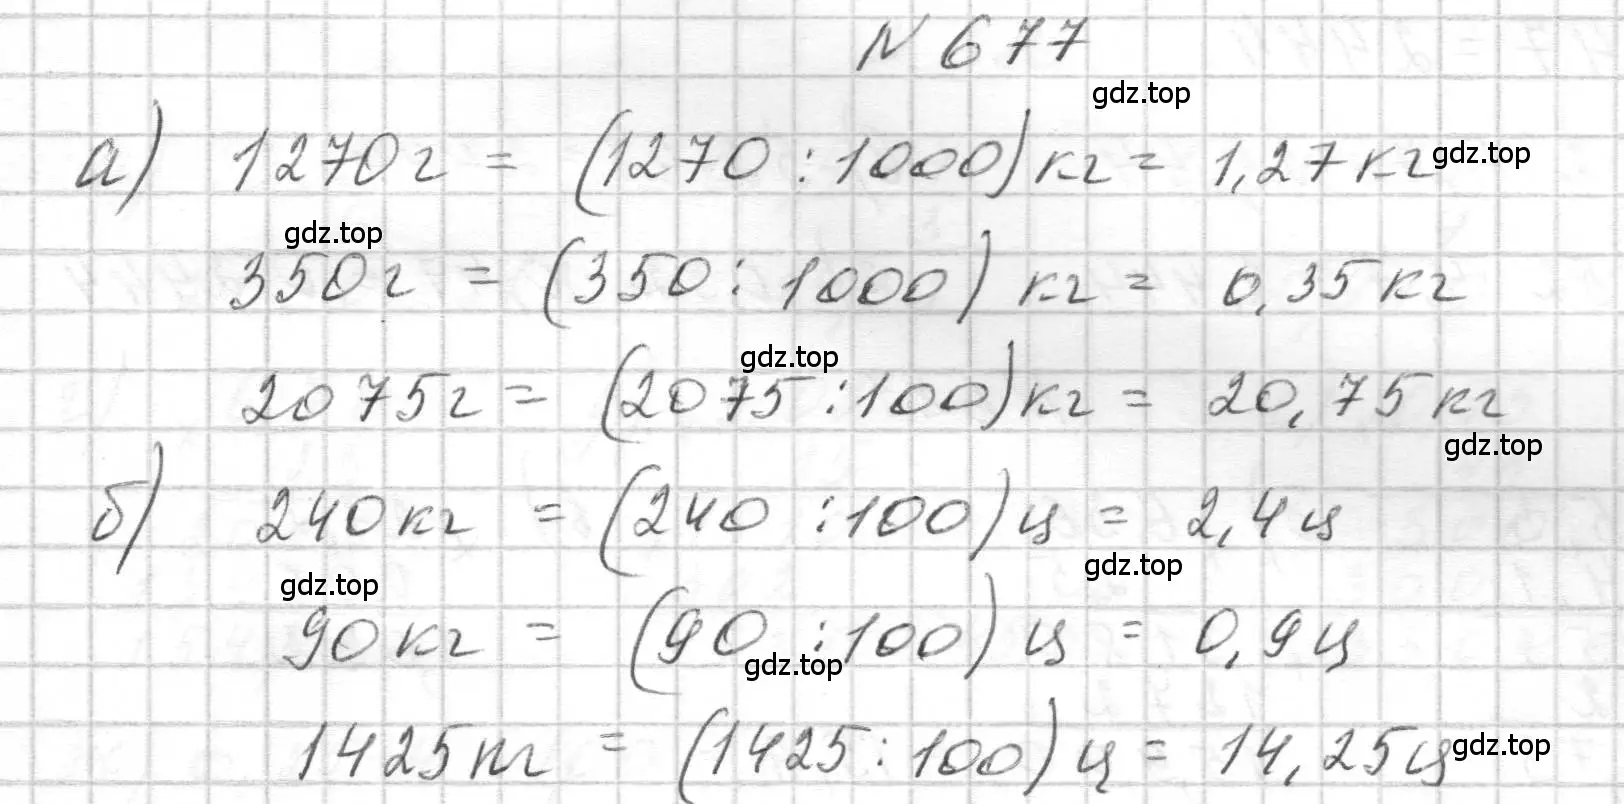 N 677
gdz.top
а) 1270г = (1270 : 1000) кг = 1,27 кг gdz.top
gdz.top
350г = (350 : 1000) кг = 0,35 кг
gdz.top
2075г = (2075 : 100) кг = 20,75 кг
gdz.top
б) 240 кг = (240 : 100) ц = 2,4 ц
gdz.top gdz.top
90 кг = (90 : 100) ц = 0,9 ц
gdz.top
1425 кг = (1425 : 100) ц = 14,25 ц gdz.top